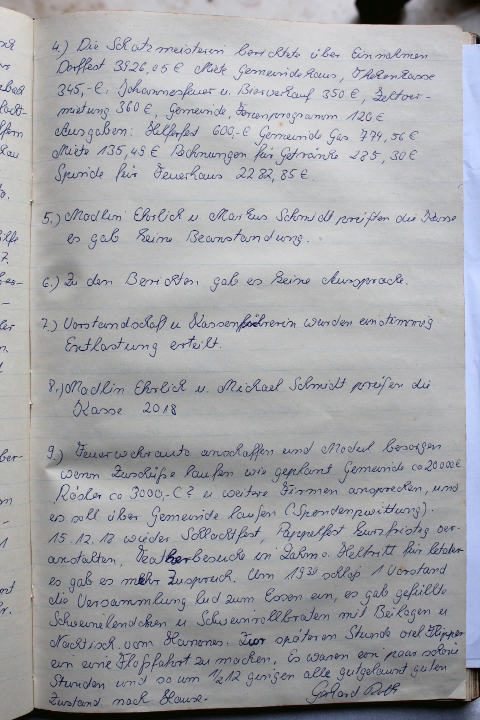 4.) Die Schatzmeisterin berichtete über Einnahmen
Dorffest 3526,05 € Miete Gemeindehaus, Thekenkasse
345,-€, Johannesfeuer u. Bierverkauf 350 €, Zeltver-
mietung 360 €, Gemeinde, Ferienprogramm 126 €
Ausgaben: Helferfest 600,-€ Gemeinde Gas 774,56 €
Miete 135,45 € Rechnungen für Getränke 285,30 €
Spende für Feuerhaus 2282,85 €
5.) Madlin Ehrlich u Markus Schmidt prüften die Kasse
es gab keine Beanstandung.
6.) Zu den Berichten gab es keine Aussprache.
7.) Vorstandschaft u Kassenführerin wurden einstimmig
Entlastung erteilt.
8.) Madlin Ehrlich u. Michael Schmidt prüfen die
Kasse 2018
9.) Feuerwehrauto anschaffen und Modul besorgen
wenn Zuschüße laufen wie geplant Gemeinde ca 20000€
Rösler ca 3000,-€? u weitere Firmen ansprechen, und
es soll über Gemeinde laufen (Spendenquittung).
15.12.12 wieder Schlachtfest, Pappelfest kurzfristig ver-
anstalten, Theaterbesuche in Lahm o. Heltritt für letzter
es gab es mehr Zuspruch. Um 19³⁰ schloß 1 Vorstand
die Versammlung lud zum Essen ein, es gab gefüllte
Schweinelendchen u Schweinrollbraten mit Beilagen u
Nachtisch vom Hannes. Zur späteren Stunde rief
ein eine Floßfahrt zu machen. Es waren ein paar schöne
Stunden und so um 1/2 12 gingen alle gutgelaunt guten
Zustand nach Hause. Gerhard Roth